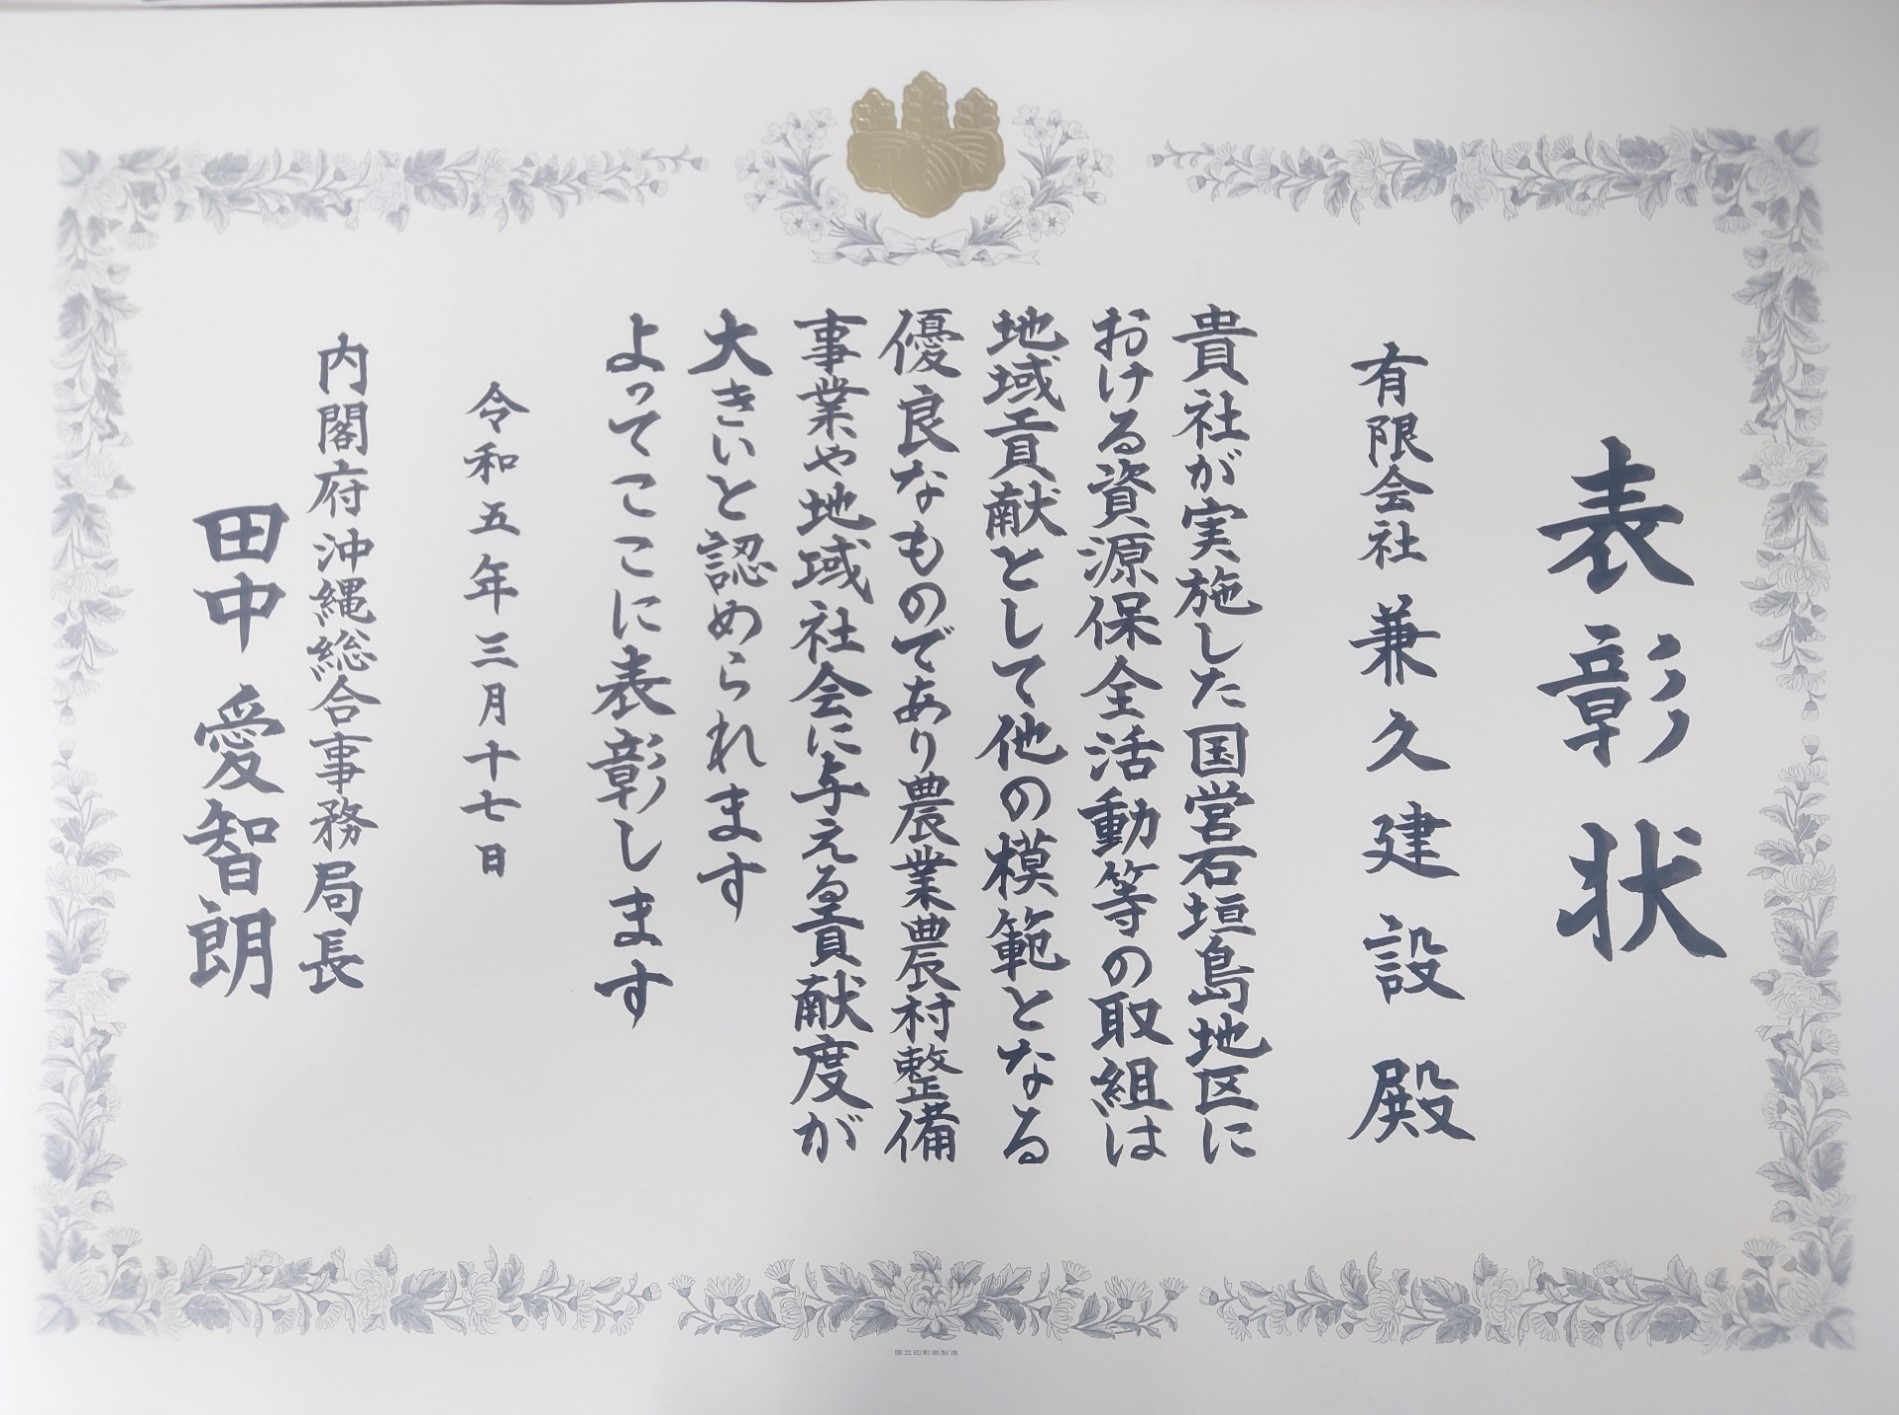 表彰状
有限会社 兼久建設 殿
貴社が実施した国営石垣島地区に
おける資源保全活動等の取組は
地域貢献として他の模範となる
優良なものであり農業農村整備
事業や地域社会に与える貢献度が
大きいと認められます
よってここに表彰します
令和五年三月十七日
内閣府沖縄総合事務局長
田中愛智朗
国立印刷局製造